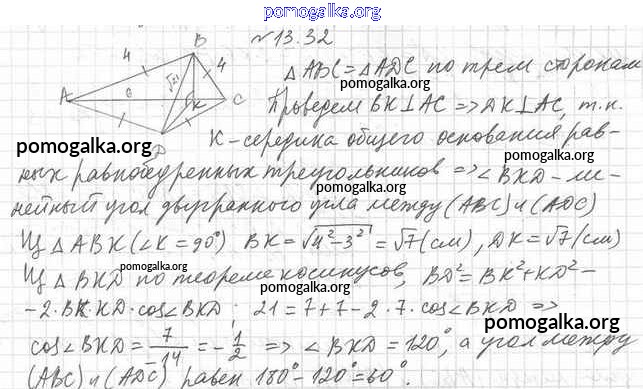 pomogalka.org
№13.32
B
4
4
√21
A
6
K
C
D
△ABC = △ADC по трем сторонам
pomogalka.org
Проведем BK⊥AC => DK⊥AC, т.к.
pomogalka.org
pomogalka.org
K - середина общего основания рав-
pomogalka.org
ных равнобедренных треугольников => ∠BKD - ли-
pomogalka.org
нейный угол двугранного угла между (ABC) и (ADC)
pomogalka.org
Из △ABK (∠K = 90°) BK = √4²-3² = √7 (см), DK = √7 (см)
pomogalka.org
Из △BKD по теореме косинусов, BD² = BK² + KD² -
- 2·BK·KD·cos∠BKD ; 21 = 7 + 7 - 2·7·cos∠BKD =>
pomogalka.org
cos∠BKD = 7/-14 = -1/2 => ∠BKD = 120°, а угол между
(ABC) и (ADC) равен 180° - 120° = 60°.
pomogalka.org